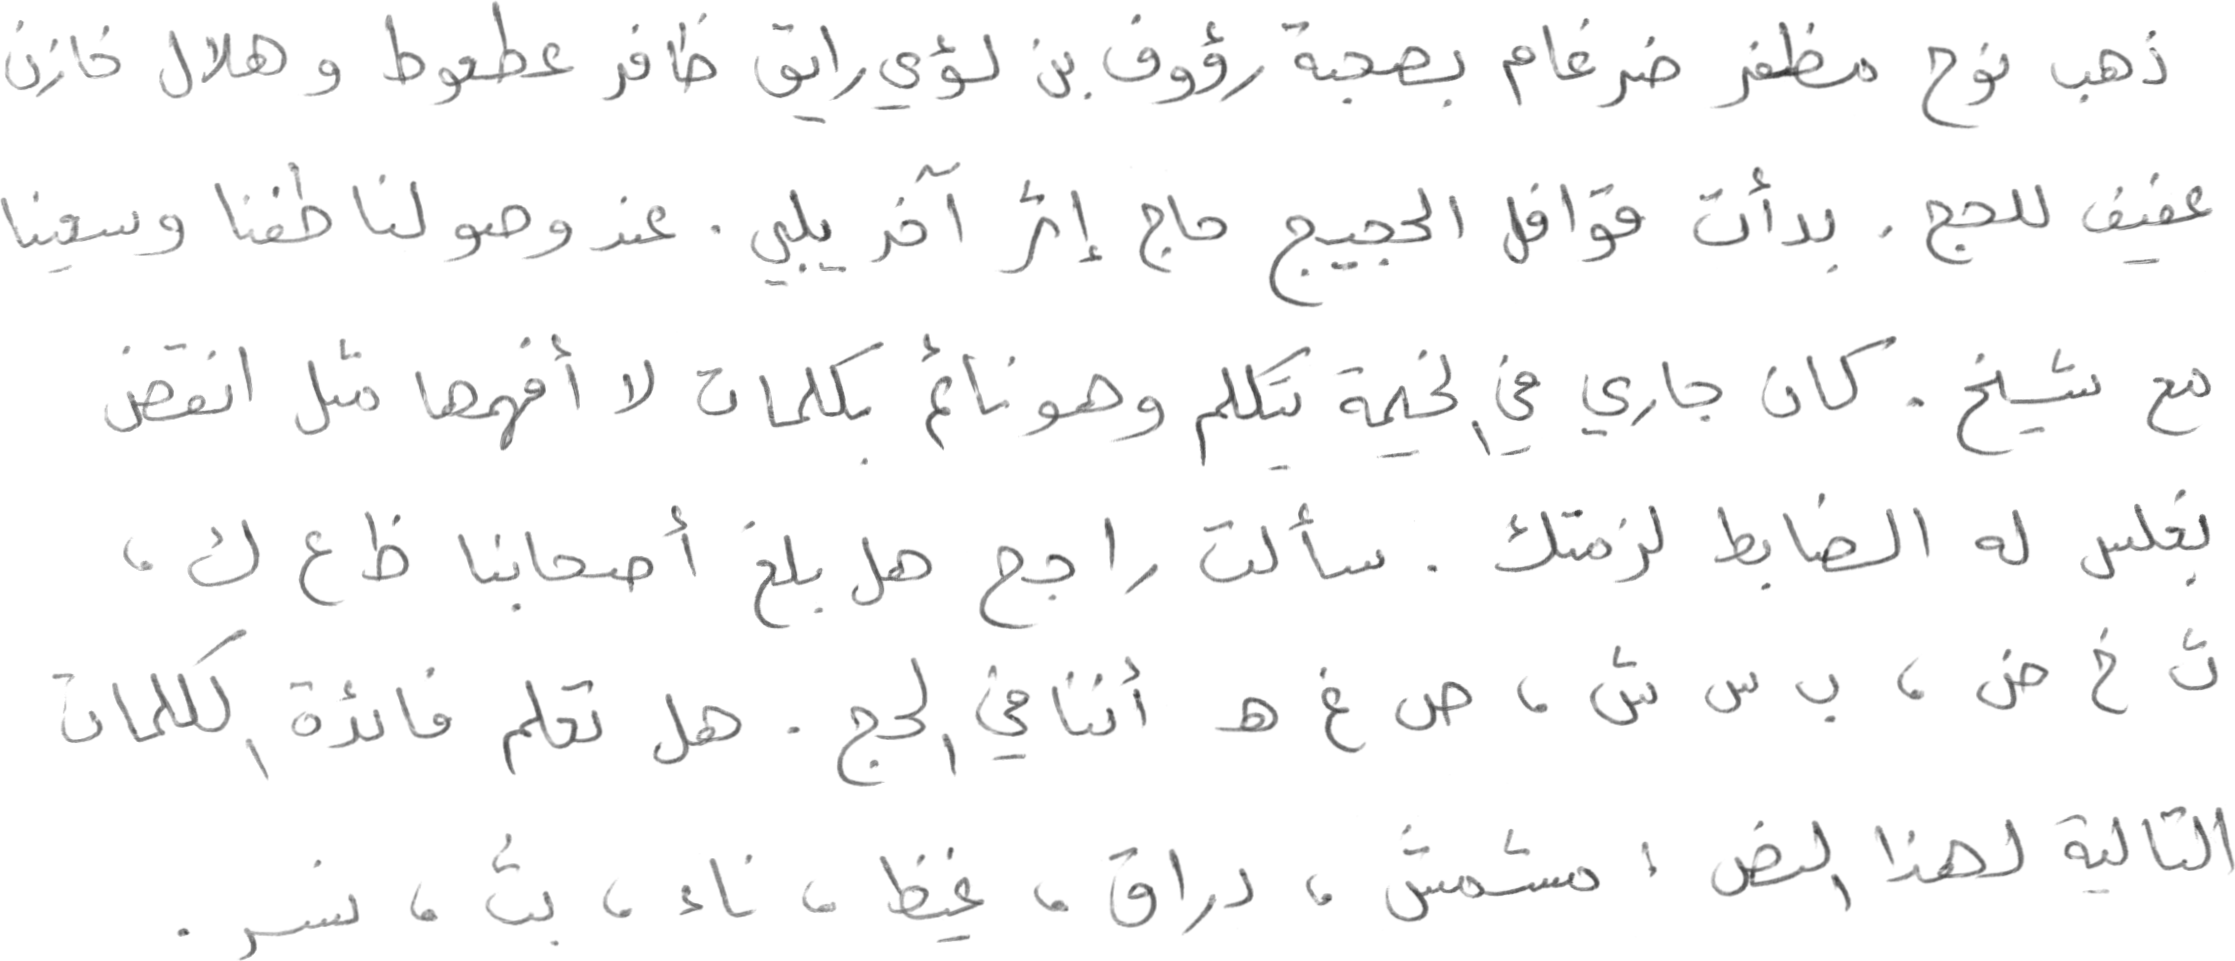 ذهب نوح مظفر ضرغام بصحبة رؤوف بن لؤي رايق ظافر عطعوط و هلال خازن
عفيف للحج . بدأت قوافل الحجيج حاج إثر آخر يلبي . عند وصولنا طفنا وسعينا
مع شيخ . كان جاري في الخيمة يتكلم وهو نائم بكلمات لا أفهمها مثل انقض
بغلس له الضابط لزمتك . سألت راجح هل بلغ أصحابنا ظ ع ك ،
ث خ ض ، ب س ش ، ص غ هـ أننا في الحج . هل تعلم فائدة الكلمات
التالية لهذا النص : مشمش ، دراق ، غيظ ، ناء ، بث ، نسر .